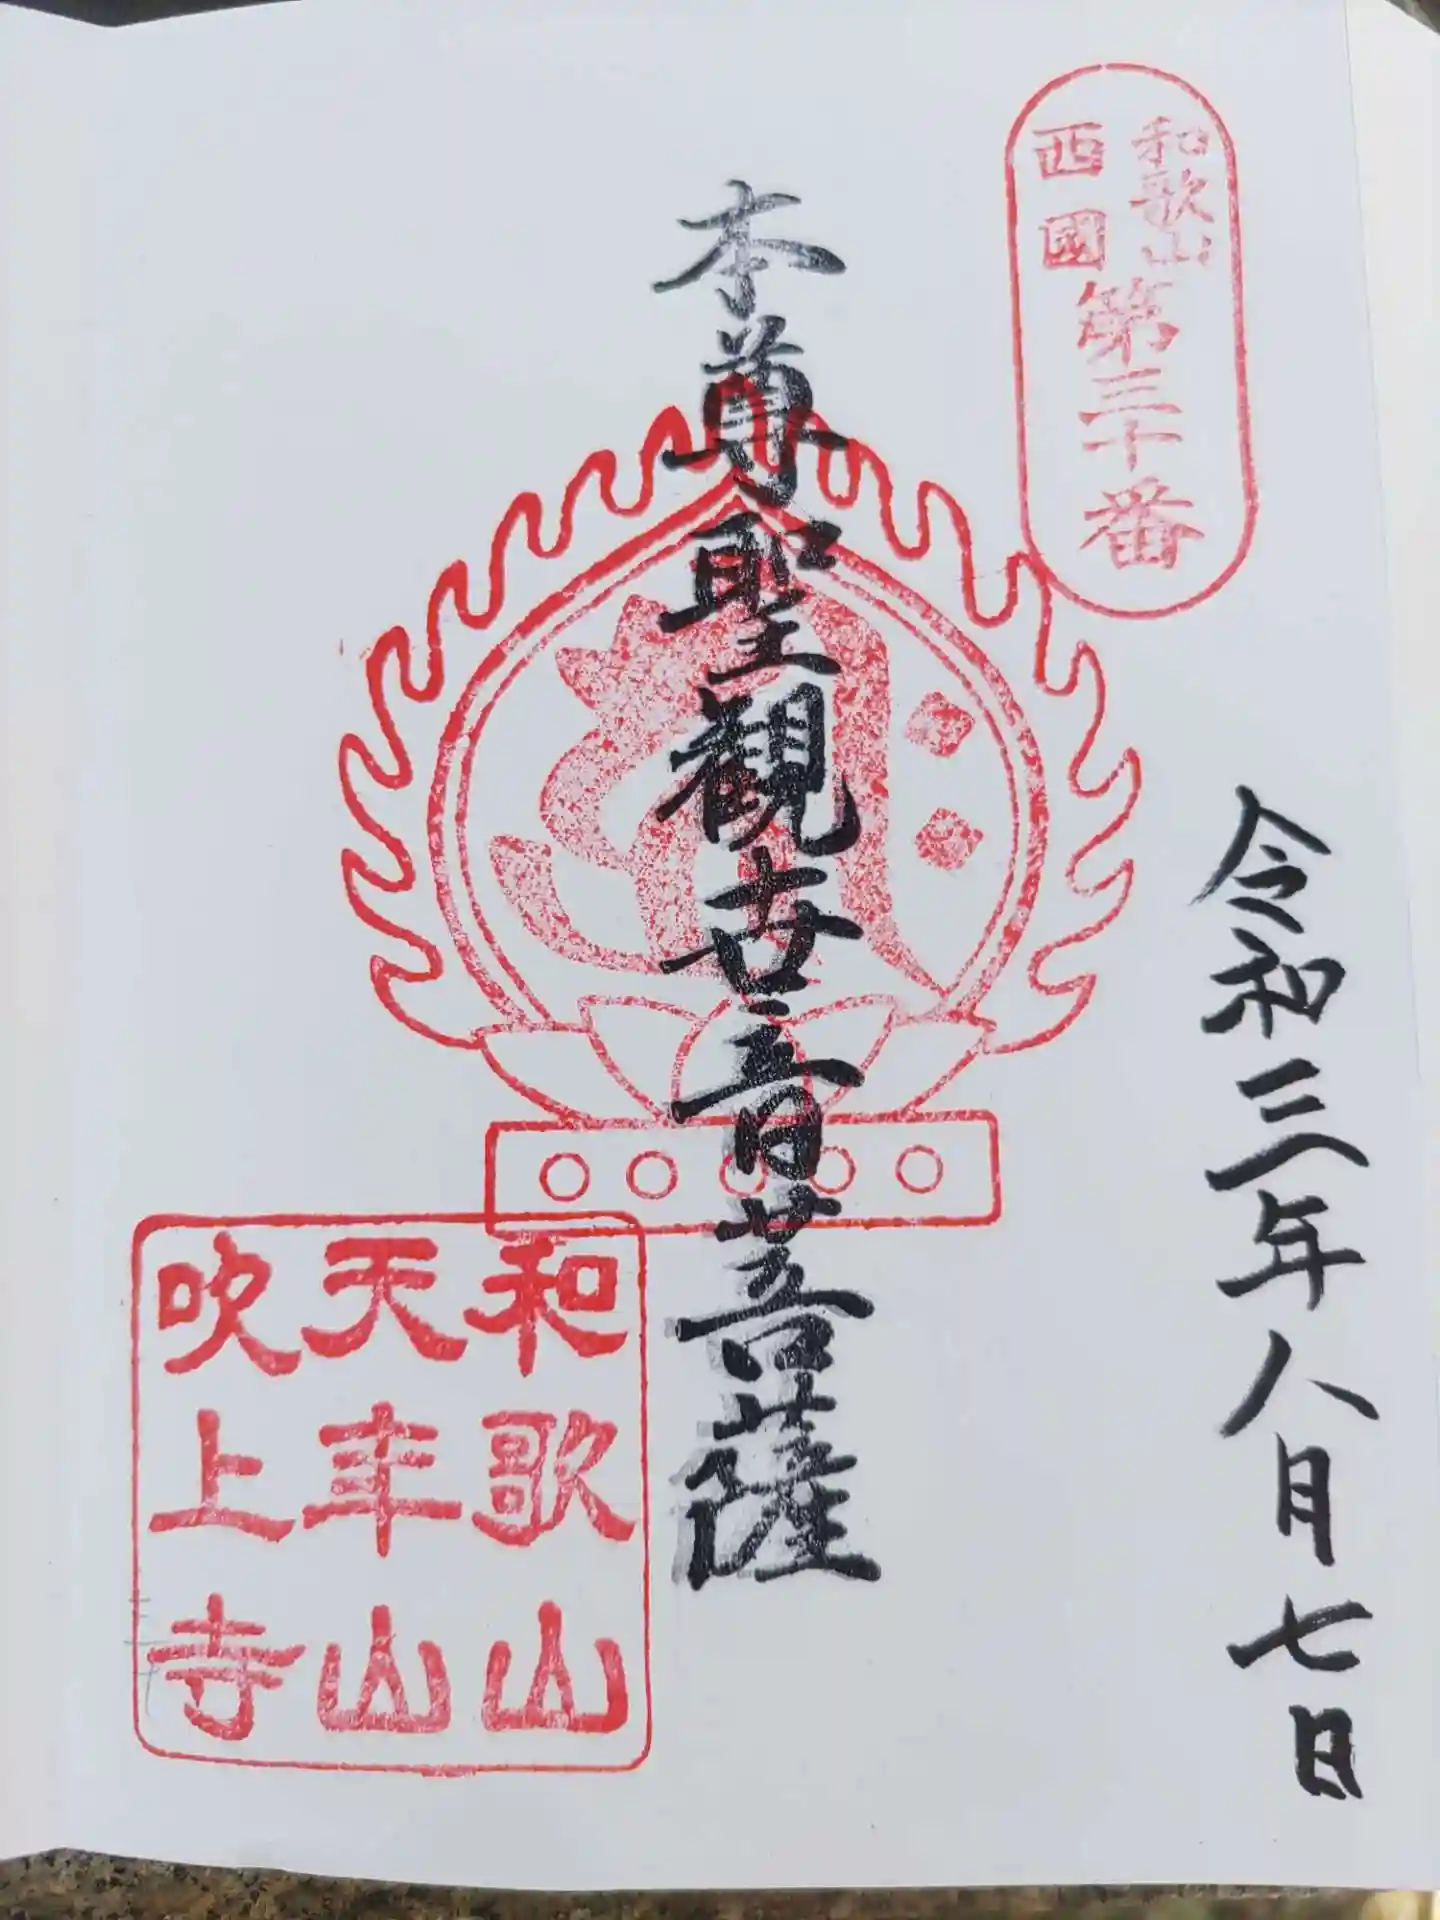 和歌山
西國
第三十番
令和三年八月七日
本尊聖観世音菩薩
和歌山
天年山
吹上寺